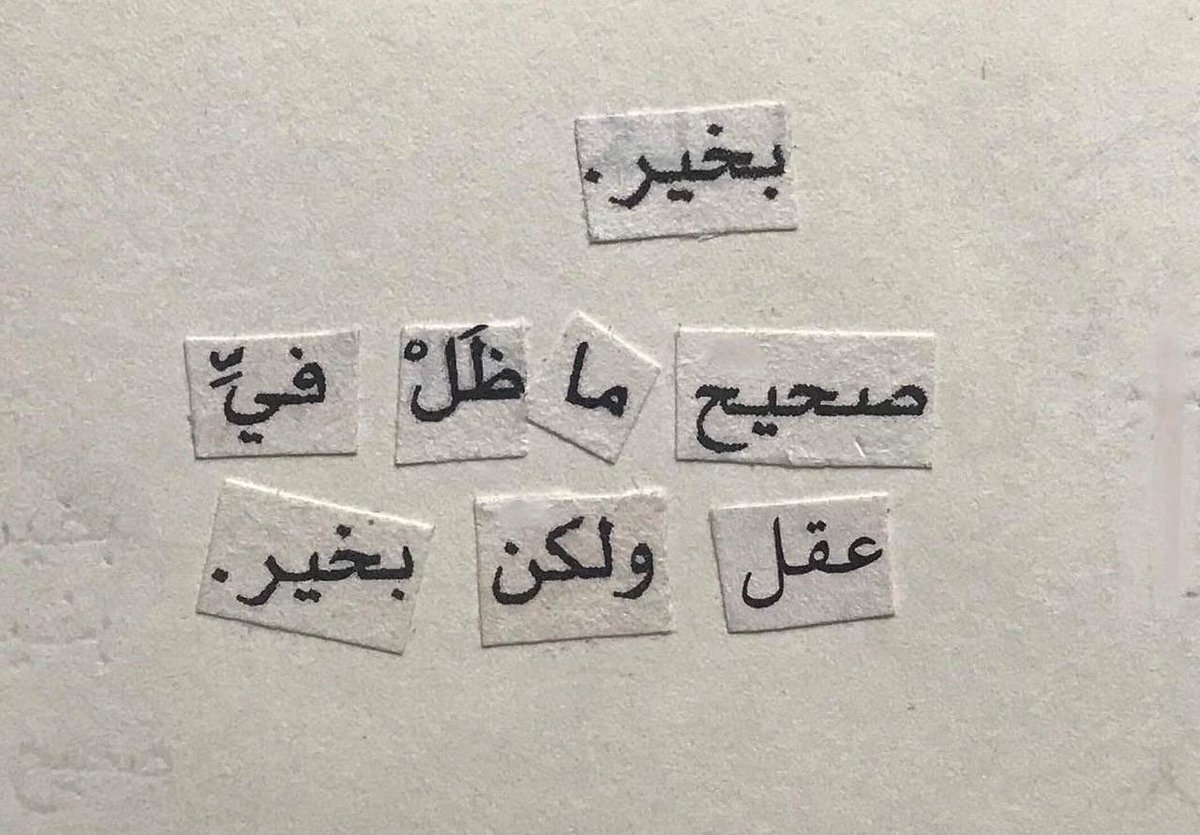 بخير.
صحيح ما ظَلْ فيِّ
عقل ولكن بخير.